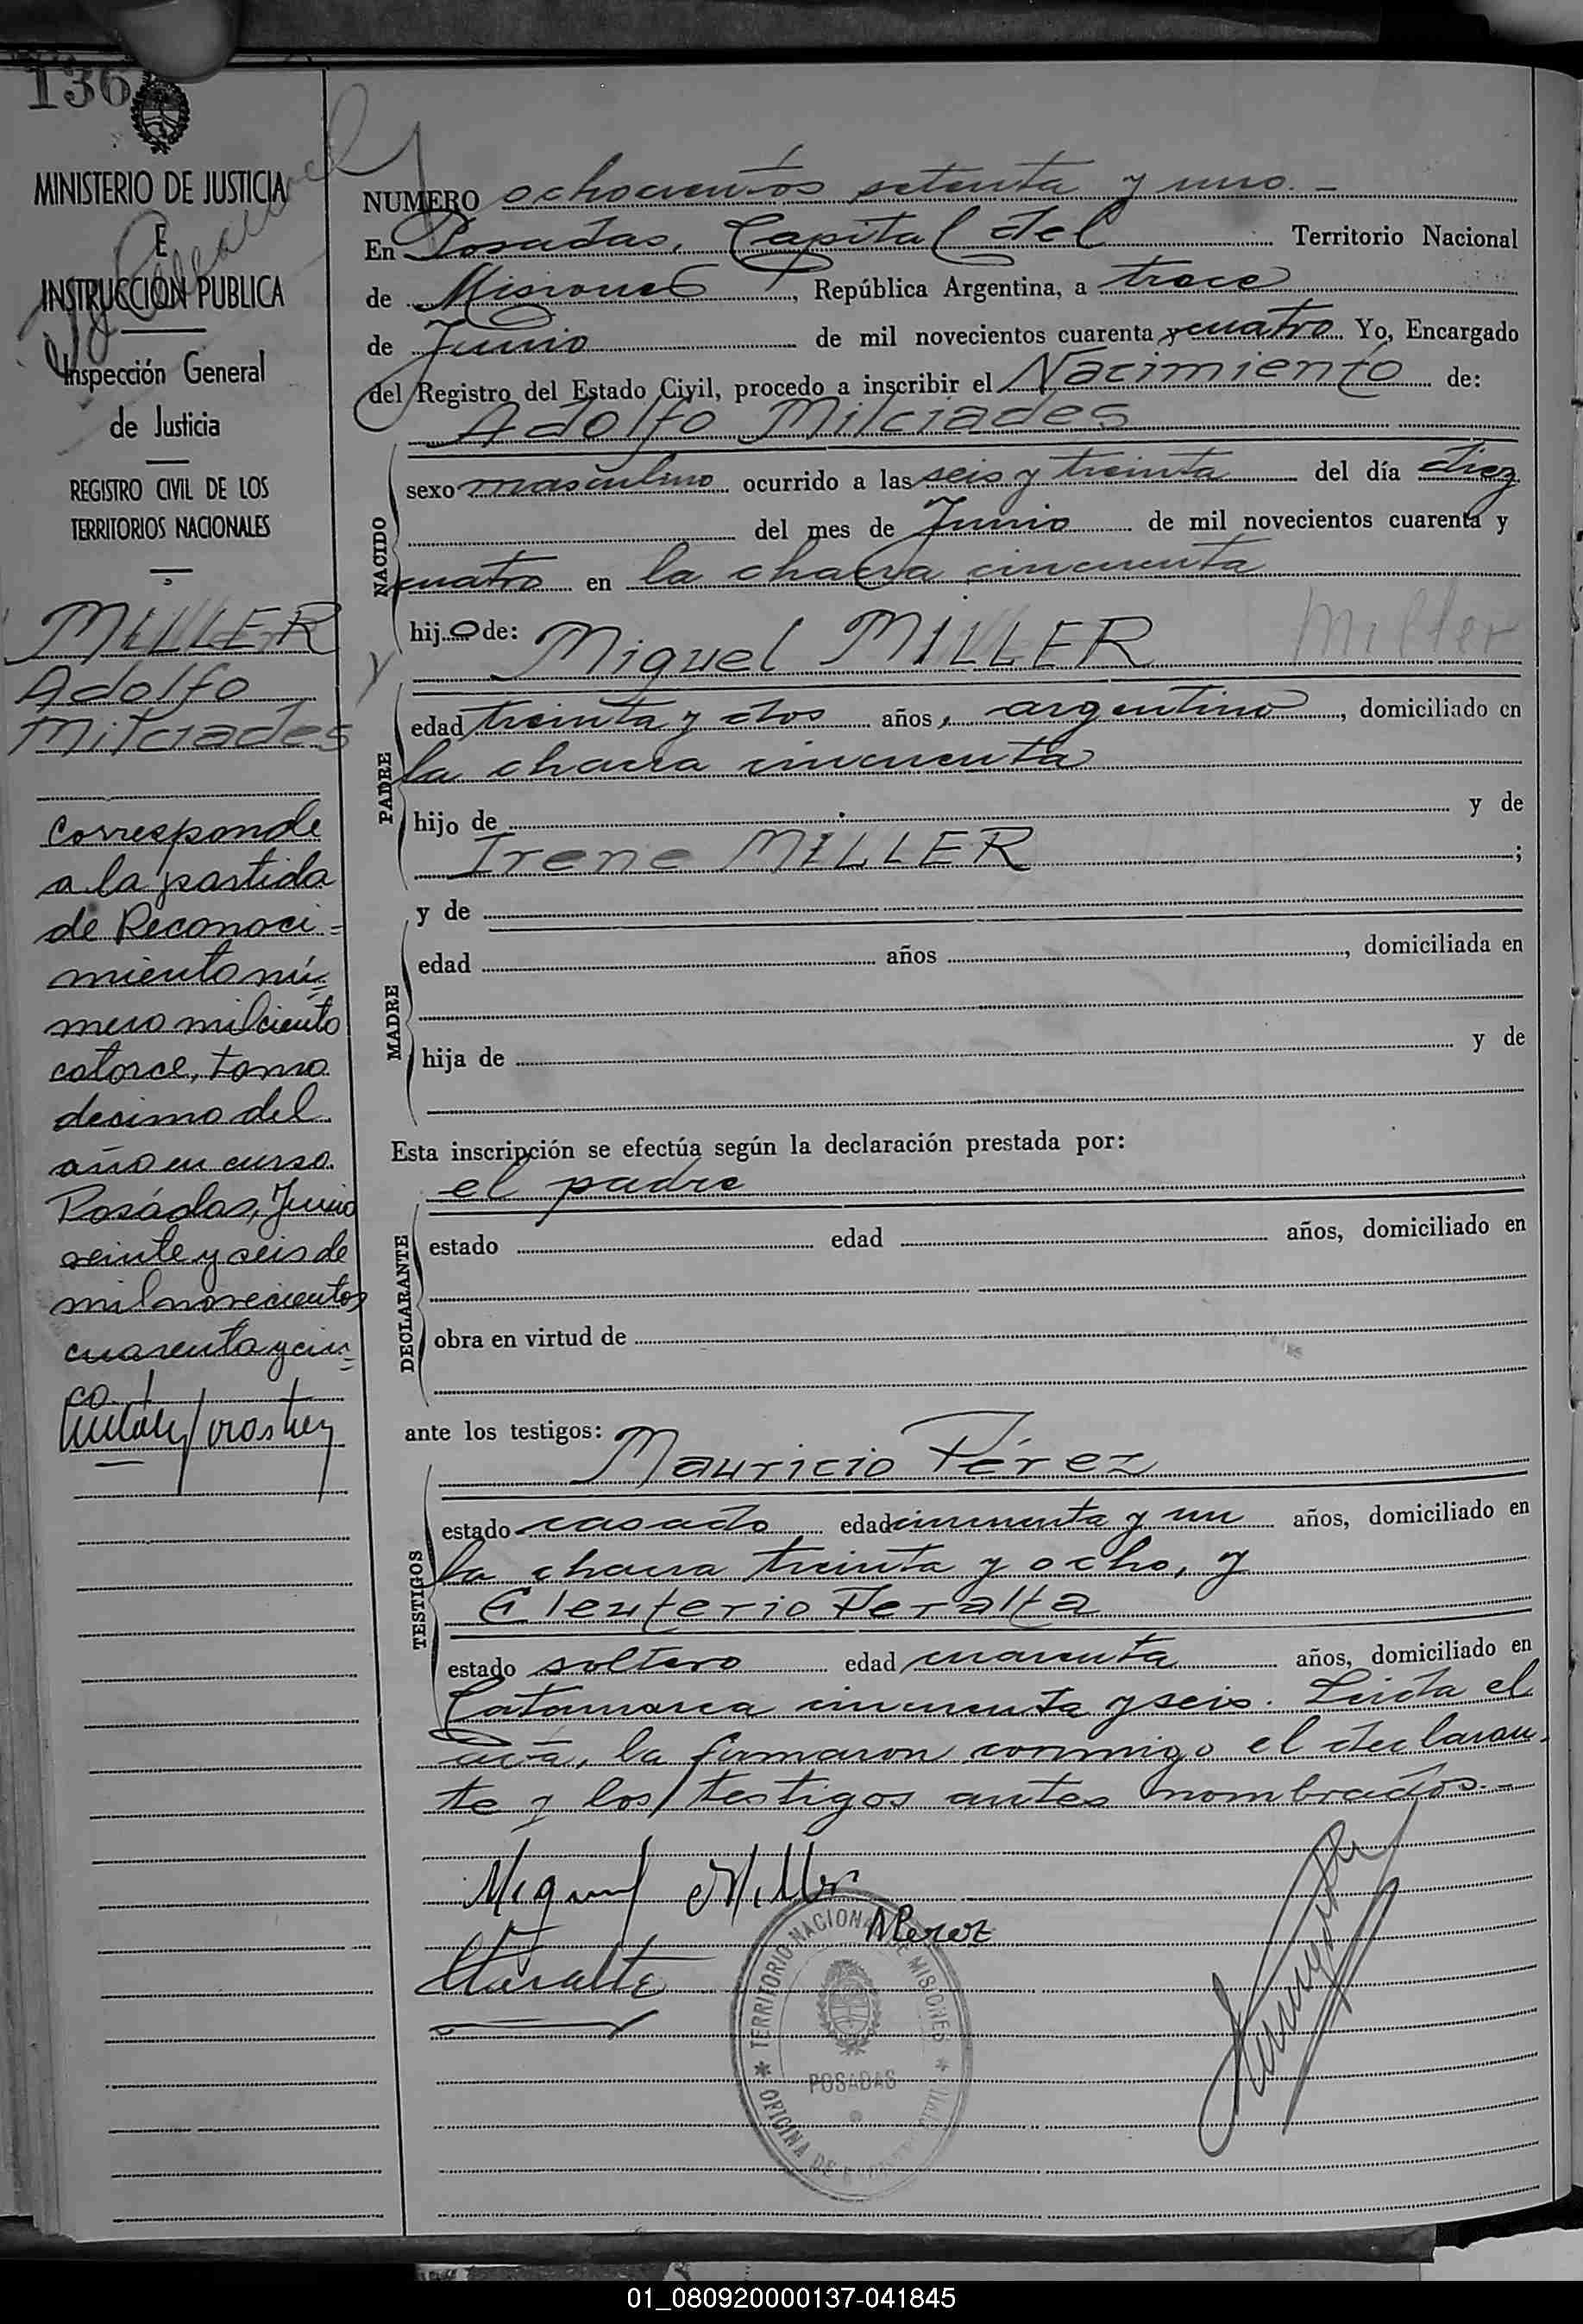 136
MINISTERIO DE JUSTICIA
E
INSTRUCCIÓN PUBLICA
Inspección General
de Justicia
REGISTRO CIVIL DE LOS
TERRITORIOS NACIONALES
MILLER
Adolfo
Milciades
Corresponde
a la partida
de Reconoci=
miento nú=
mero mil ciento
catorce, tomo
decimo del
año en curso.
Posádas, Junio
veinte y seis de
mil novecientos
cuarenta y cin=
co.
NUMERO ochocientos setenta y uno.-
En Posadas, Capital del Territorio Nacional
de Misiones, República Argentina, a trece
de Junio de mil novecientos cuarenta y cuatro Yo, Encargado
del Registro del Estado Civil, procedo a inscribir el Nacimiento de:
Adolfo Milciades
NACIDO
sexo masculino ocurrido a las seis y treinta del día diez
del mes de Junio de mil novecientos cuarenta y
cuatro en la chacra cincuenta
hijo de: Miguel MILLER Miller
PADRE
edad treinta y dos años, argentino, domiciliado en
la chacra cincuenta
hijo de y de
Irene MILLER ;
MADRE
y de
edad años , domiciliada en
hija de y de
Esta inscripción se efectúa según la declaración prestada por:
el padre
DECLARANTE
estado edad años, domiciliado en
obra en virtud de
ante los testigos:
Mauricio Pérez
TESTIGOS
estado casado edad cincuenta y un años, domiciliado en
la chacra treinta y ocho, y
Eleuterio Peralta
estado soltero edad cuarenta años, domiciliado en
Catamarca cincuenta y seis. Leida el
acta, la firmaron conmigo el declaran-
te y los testigos antes nombrados.-
Miguel Miller
MPerez
TERRITORIO NACIONAL DE MISIONES
POSADAS
OFICINA DE
01_080920000137-041845